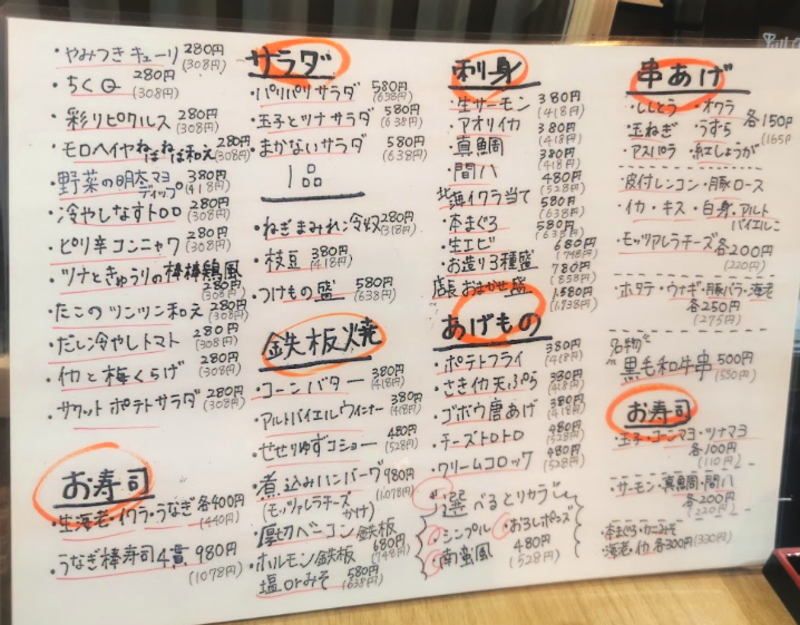 ・やみつきキューリ 280円
(308円)
・ちくQ 280円
(308円)
・彩りピクルス 280円
(308円)
・モロヘイヤねばねば和え 280円
(308円)
・野菜の明太マヨディップ 380円
(418円)
・冷やしなすトロロ 280円
(308円)
・ピリ辛コンニャク 280円
(308円)
・ツナときゅうりの棒棒鶏風
280円
(308円)
・たこのツンツン和え 280円
(308円)
・だし冷やしトマト 280円
(308円)
・イカと梅くらげ 280円
(308円)
・サクット ポテトサラダ 280円
(308円)
お寿司
・生海老・イクラ・うなぎ 各400円
(440円)
・うなぎ棒寿司4貫 980円
(1078円)
サラダ
・パリパリサラダ 580円
(638円)
・玉子とツナサラダ 580円
(638円)
・まかないサラダ 580円
(638円)
一品
・ねぎまみれ冷奴 280円
(318円)
・枝豆 380円
(418円)
・つけもの盛 580円
(638円)
鉄板焼
・コーンバター 380円
(418円)
・アルトバイエルウインナー 380円
(418円)
・せせりゆずコショー 480円
(528円)
・煮込みハンバーグ 980円
(モッツァレラチーズかけ) (1078円)
・厚切ベーコン鉄板
680円
(748円)
・ホルモン鉄板
塩orみそ 580円
(638円)
刺身
・生サーモン 380円
(418円)
・アオリイカ 380円
(418円)
・真鯛 380円
(418円)
・間八 480円
(528円)
北海イクラ当て 580円
(638円)
・本まぐろ 580円
(638円)
・生エビ 680円
(748円)
・お造り3種盛 780円
(858円)
店長おまかせ盛 1.580円
(1.738円)
あげもの
・ポテトフライ 380円
(418円)
・さきイカ天ぷら 380円
(418円)
・ゴボウ唐あげ 380円
(418円)
・チーズトロトロ 480円
(528円)
・クリームコロッケ 480円
(528円)
選べるとりカラ
・シンプル ・おろしポンズ
・南蛮風 480円
(528円)
串あげ
・ししとう ・オクラ
・玉ねぎ ・うずら 各150円
・アスパラ ・紅しょうが (165円
・皮付レンコン・豚ロース
・イカ・キス・白身・アルトバイエルン
・モッツァレラチーズ 各200円
(220円)
・ホタテ・ウナギ・豚バラ・海老
各250円
(275円)
名物
黒毛和牛串 500円
(550円)
お寿司
・玉子・コーンマヨ・ツナマヨ
各100円
(110円)
・サーモン・真鯛・間八
各200円
(220円)
・本まぐろ・カニみそ
・海老・イカ 各300円 (330円)